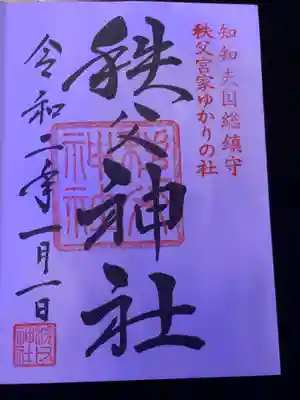 知知夫国総鎮守
秩父宮家ゆかりの社
秩父神社
令和二年一月一日
秩父
神社